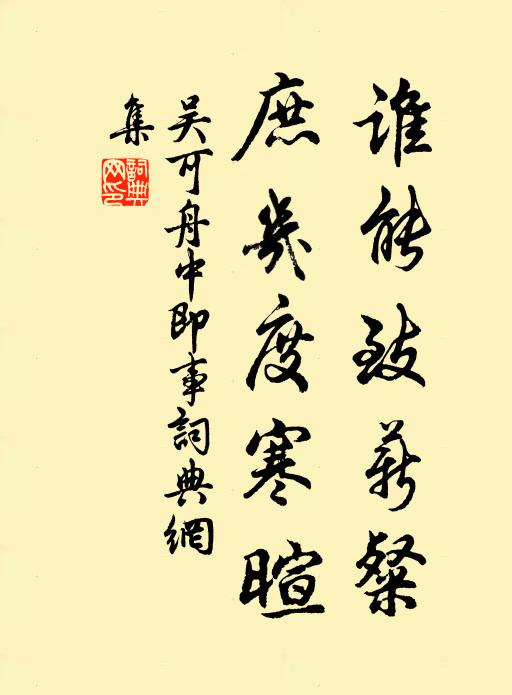 誰能致薪粲
庶幾度寒暄
吴可舟中即事詞典網
集
詞典網印